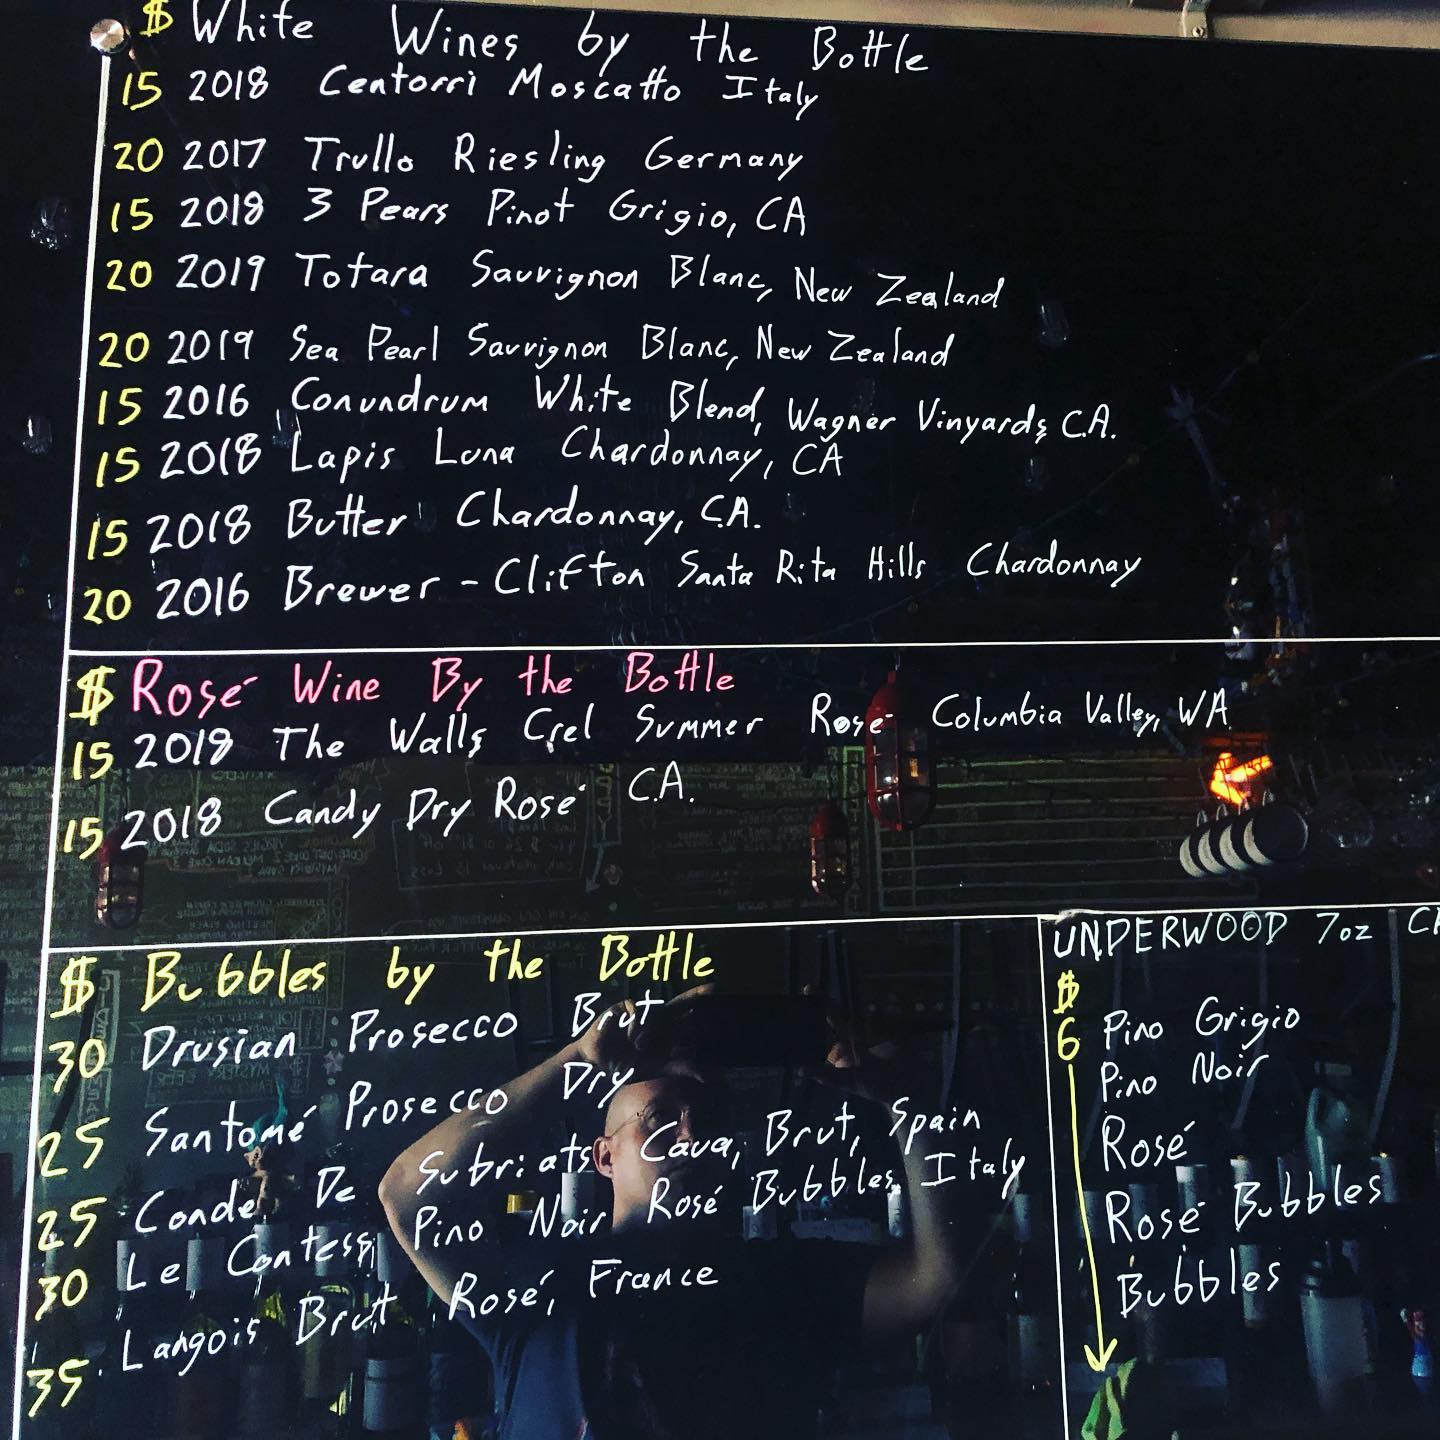 $ White Wines by the Bottle
15 2018 Centorri Moscatto Italy
20 2017 Trullo Riesling Germany
15 2018 3 Pears Pinot Grigio, CA
20 2019 Totara Sauvignon Blanc, New Zealand
20 2019 Sea Pearl Sauvignon Blanc, New Zealand
15 2016 Conundrum White Blend, Wagner Vinyards, C.A.
15 2018 Lapis Luna Chardonnay, CA
15 2018 Butter Chardonnay, C.A.
20 2016 Brewer-Clifton Santa Rita Hills Chardonnay
$ Rosé Wine By the Bottle
15 2018 The Walls Crel Summer Rosé Columbia Valley, WA
15 2018 Candy Dry Rosé C.A.
$ Bubbles by the Bottle
30 Drusian Prosecco Brut
25 Santomé Prosecco Dry
25 Conde De Subriats Cava, Brut, Spain
30 Le Contess Pino Noir Rosé Bubbles, Italy
35 Langois Brut Rosé, France
UNDERWOOD 7oz
$
6 Pino Grigio
Pino Noir
Rosé
Rosé Bubbles
Bubbles